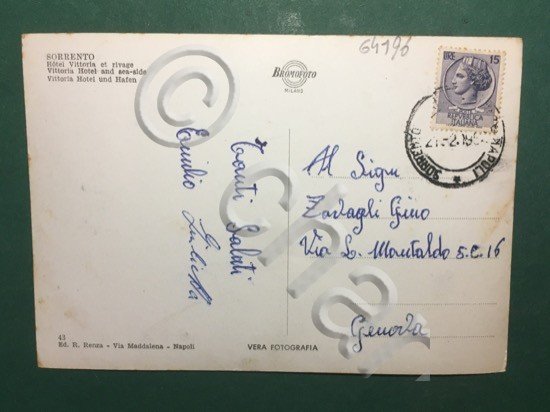 64196
SORRENTO
Hôtel Vittoria et rivage
Vittoria Hotel and sea-side
Vittoria Hotel und Hafen
BROMOFOTO
MILANO
LIRE 15
REPUBBLICA
ITALIANA
NAPOLI
SORRENTO
Tanti Saluti
Emilio Giulietta
Al Sigr
Zavagli Gino
Via L. Montaldo 5.c.16
Genova
43
Ed. R. Renza - Via Maddalena - Napoli
VERA FOTOGRAFIA
© cha